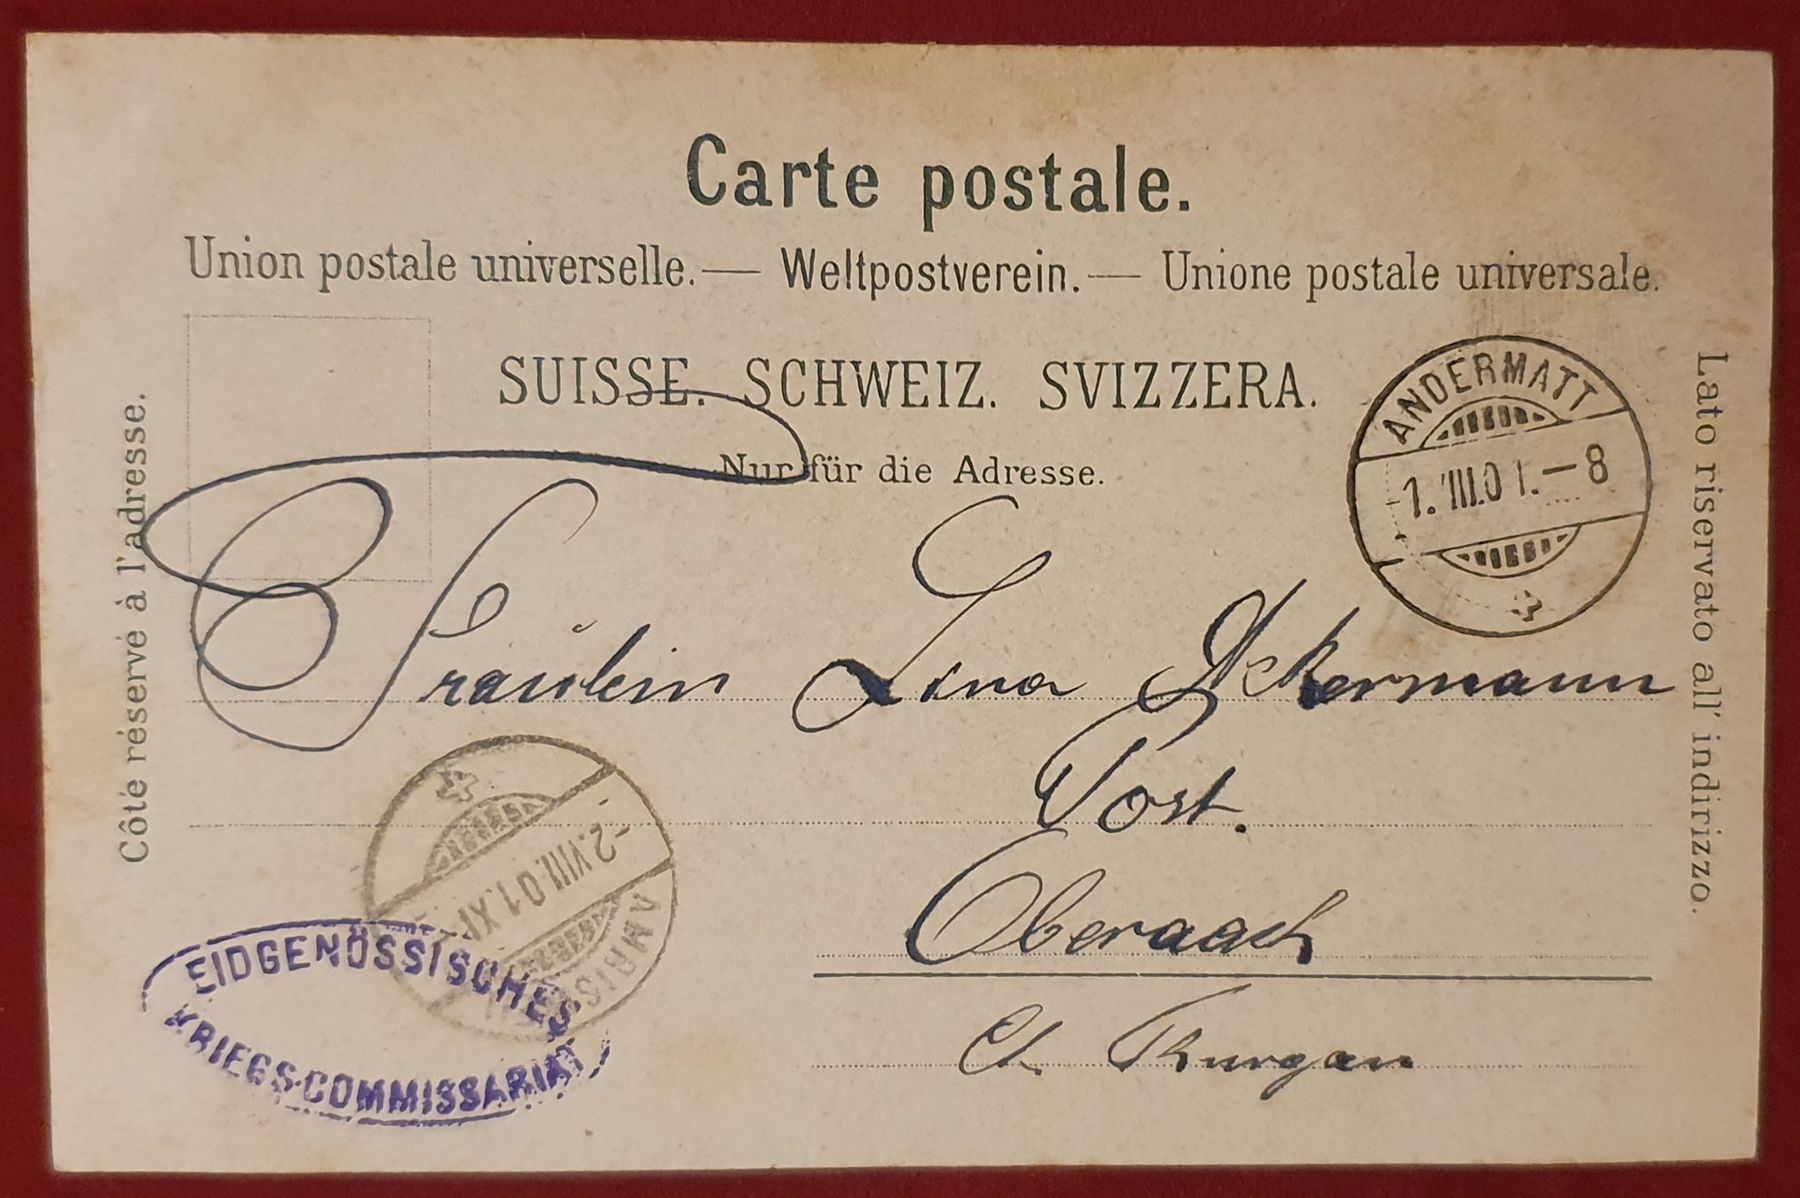 Carte postale.
Union postale universelle. — Weltpostverein. — Unione postale universale.
SUISSE. SCHWEIZ. SVIZZERA.
Nur für die Adresse.
Côté réservé à l'adresse.
Lato riservato all' indirizzo.
ANDERMATT
1.VIII.01.–8
Fräulein Lina Ackermann
Post.
Oberaach
Ct. Thurgau
-2.VIII.01.XI
AMRISWIL
EIDGENÖSSISCHES
KRIEGS-COMMISSARIAT